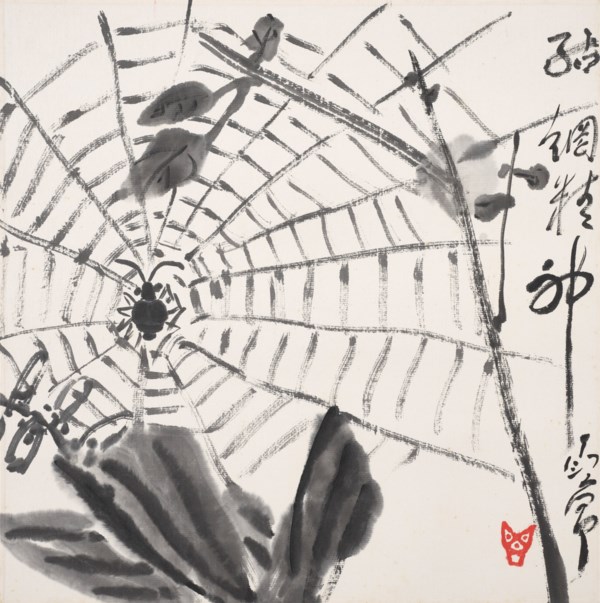 結網精神
丁衍庸